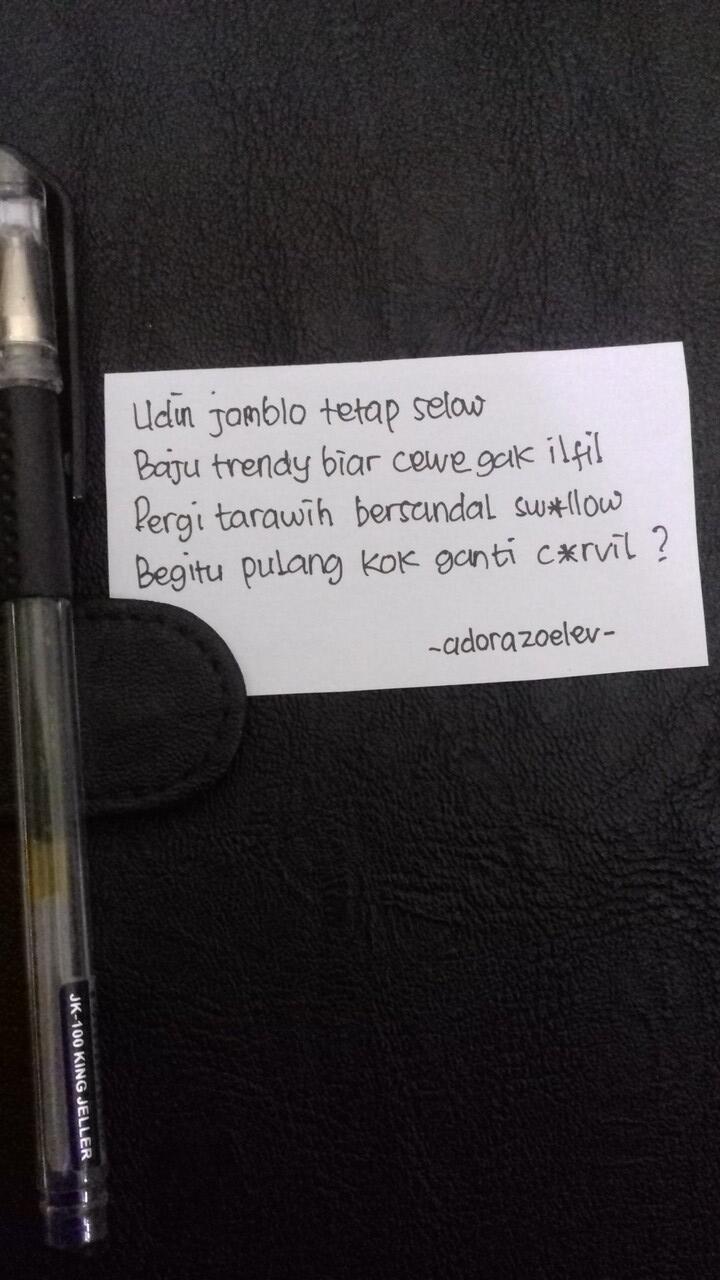 Udin jomblo tetap selow
Baju trendy biar cewe gak ilfil
Pergi tarawih bersandal sw*llow
Begitu pulang kok ganti c*rvil ?
~adorazoelev~
JK-100 KING JELLER